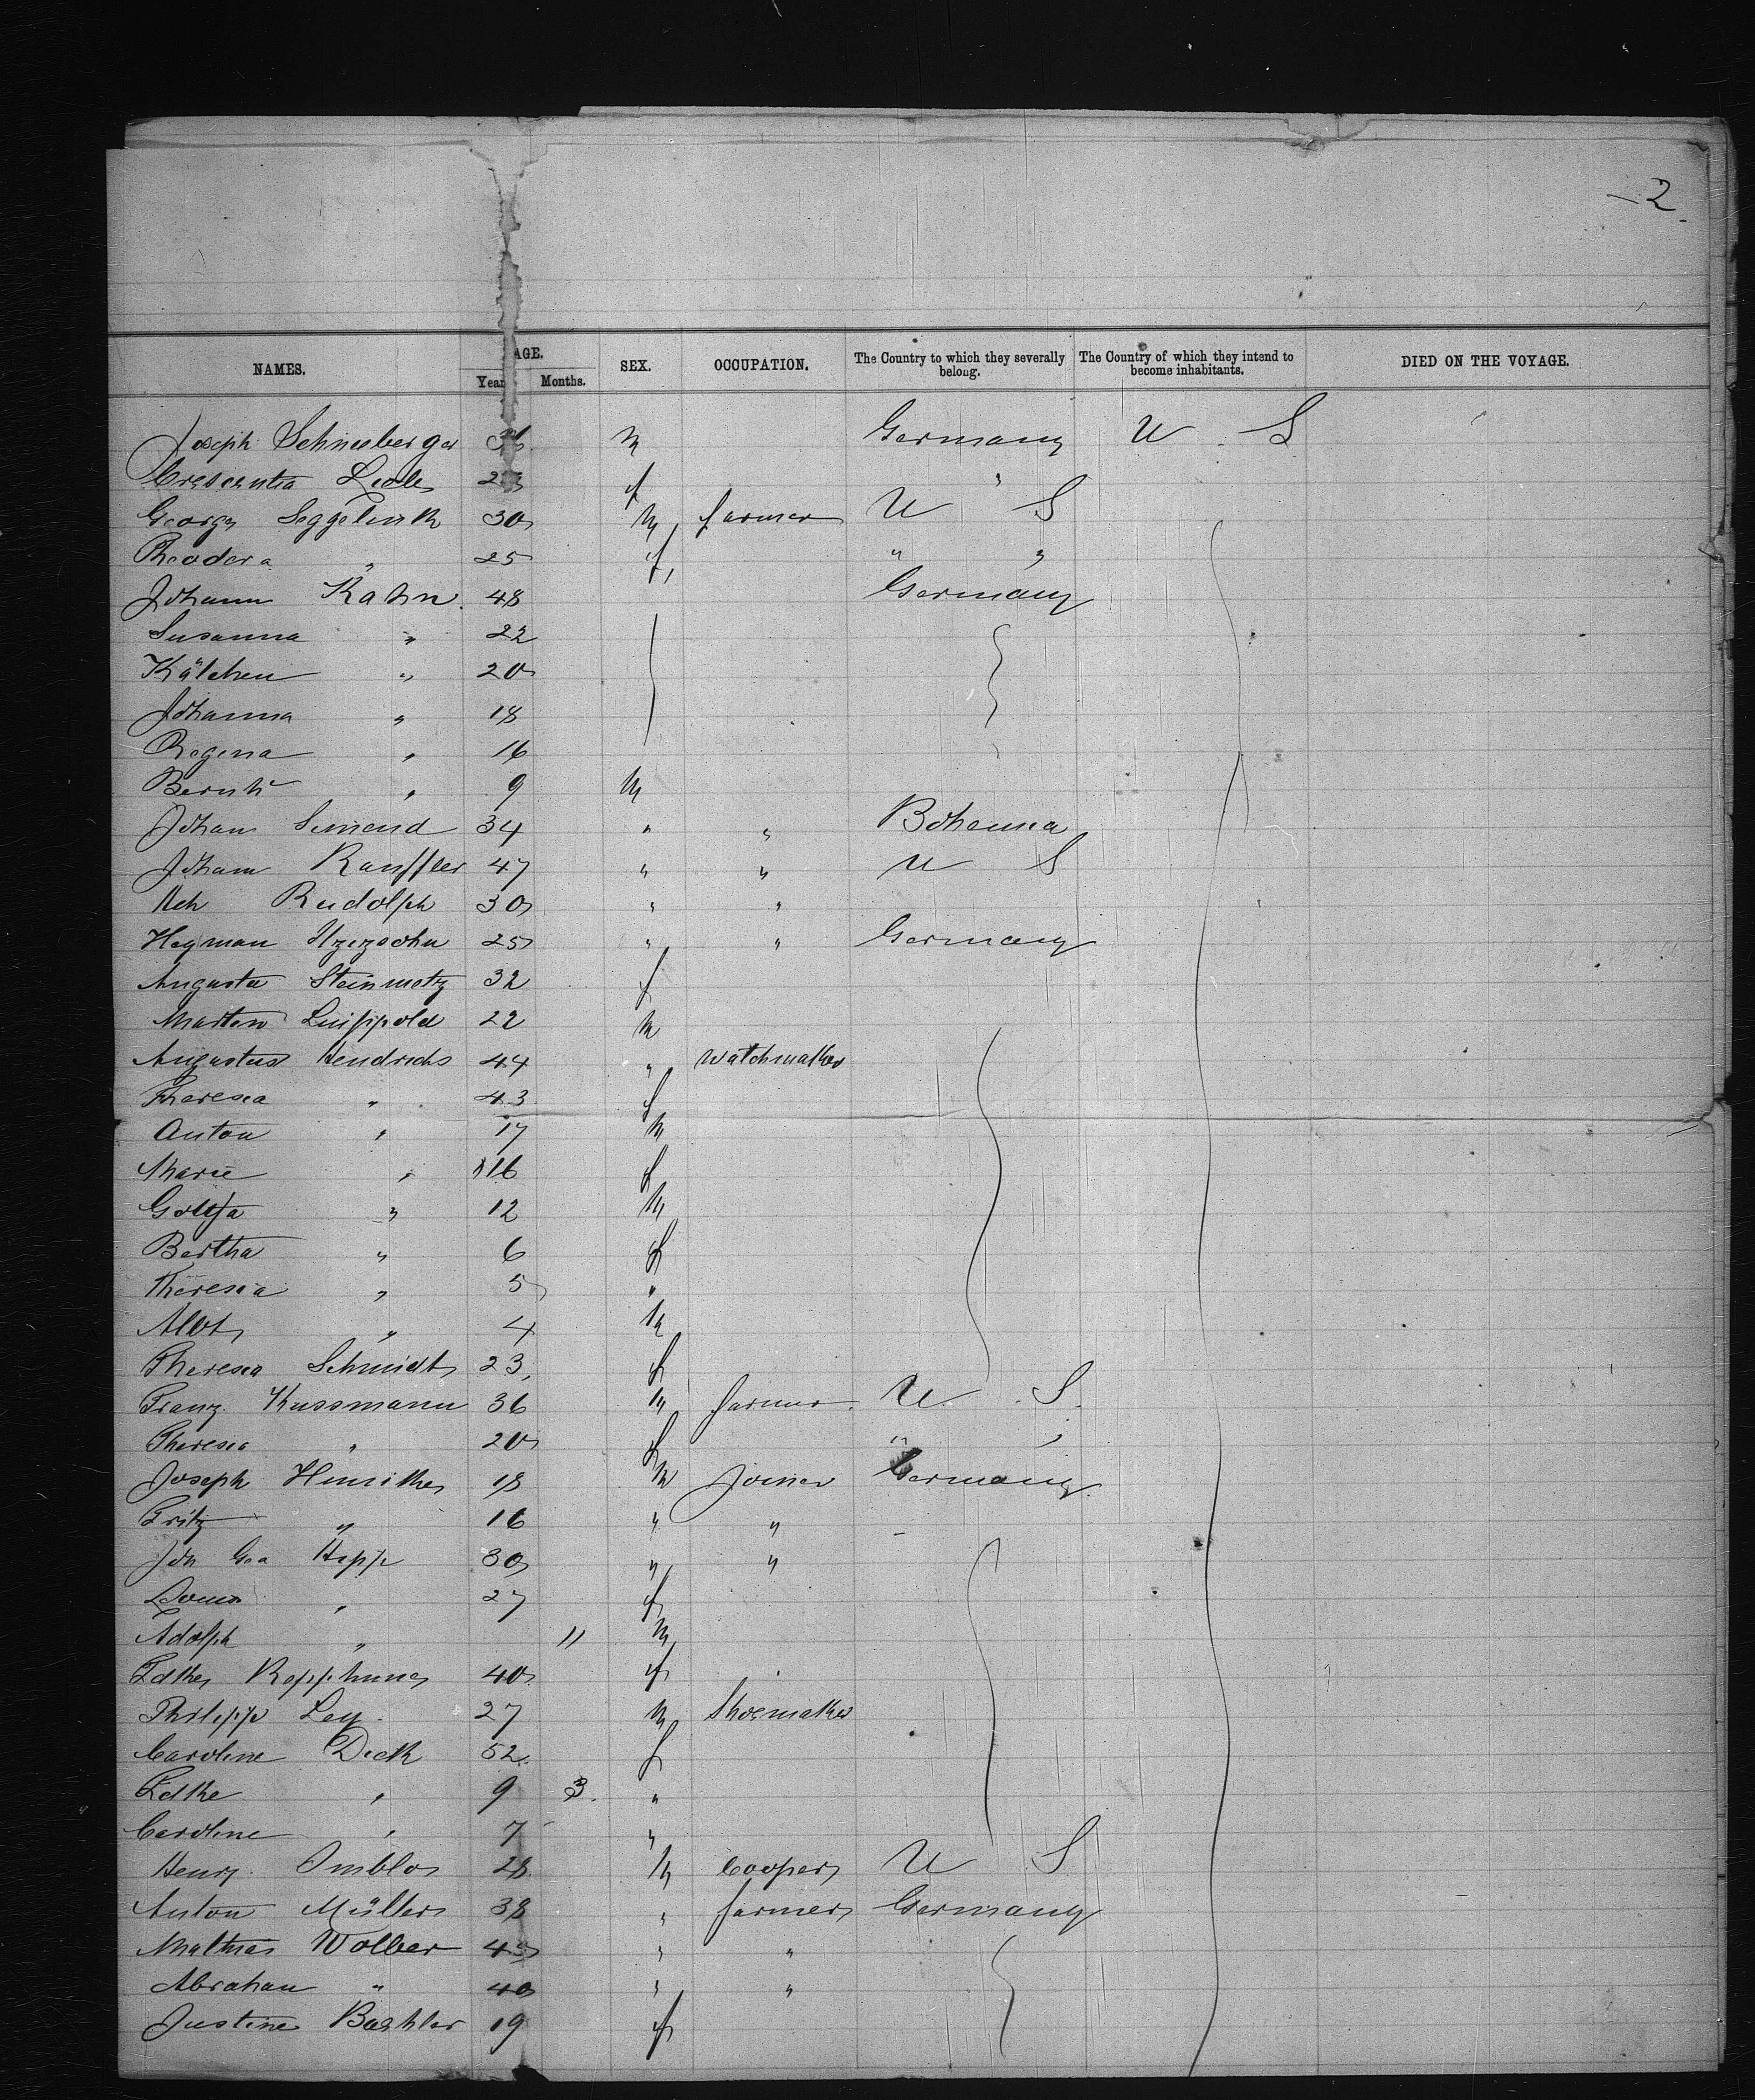 — 2
NAMES. AGE. SEX. OCCUPATION. The Country to which they severally belong. The Country of which they intend to become inhabitants. DIED ON THE VOYAGE.
Years Months.
Joseph Schneeberger m Germany U. S
Crescentia f "
George Seggelink 30 m farmer U S
Theodora " 25 f " "
Johann Kahn 48 Germany
Susanna " 22
Kätchen " 20
Johanna " 18
Regina " 16
Bernh " 9 m
Johan Simend 34 " " Bohemia
Joham Rauffler 47 " " U S
Rudolph 30 " "
Heyman 25 " " Germany
Augusta Steinmetz 32 f
Martin Luippold 22 m
Augustus Hendrichs 44 " Watchmaker
Theresia " 43 f
Anton " 17 m
Marie " 16 f
" 12 m
Bertha " 6 f
Theresia " 5 "
Albt " 4 m
Theresia Schmidt 23 f
Franz Kussmann 36 m farmer U. S.
Theresia " 20 f " "
Joseph 18 m Joiner Germany
Fritz " 16 " "
Joh Geo Hepp 30 " "
" 27 f
Adolph " 11 m
Repphun 40 f
Philipp Ley 27 m Shoemaker
Caroline Dick 52 f
" 9 3. "
Caroline " 7 "
Henry 28 m Cooper U S
Anton Müller 38 " farmer Germany
Mathias Wolber 43 " "
Abraham " 40 " "
Justine Baehler 19 f